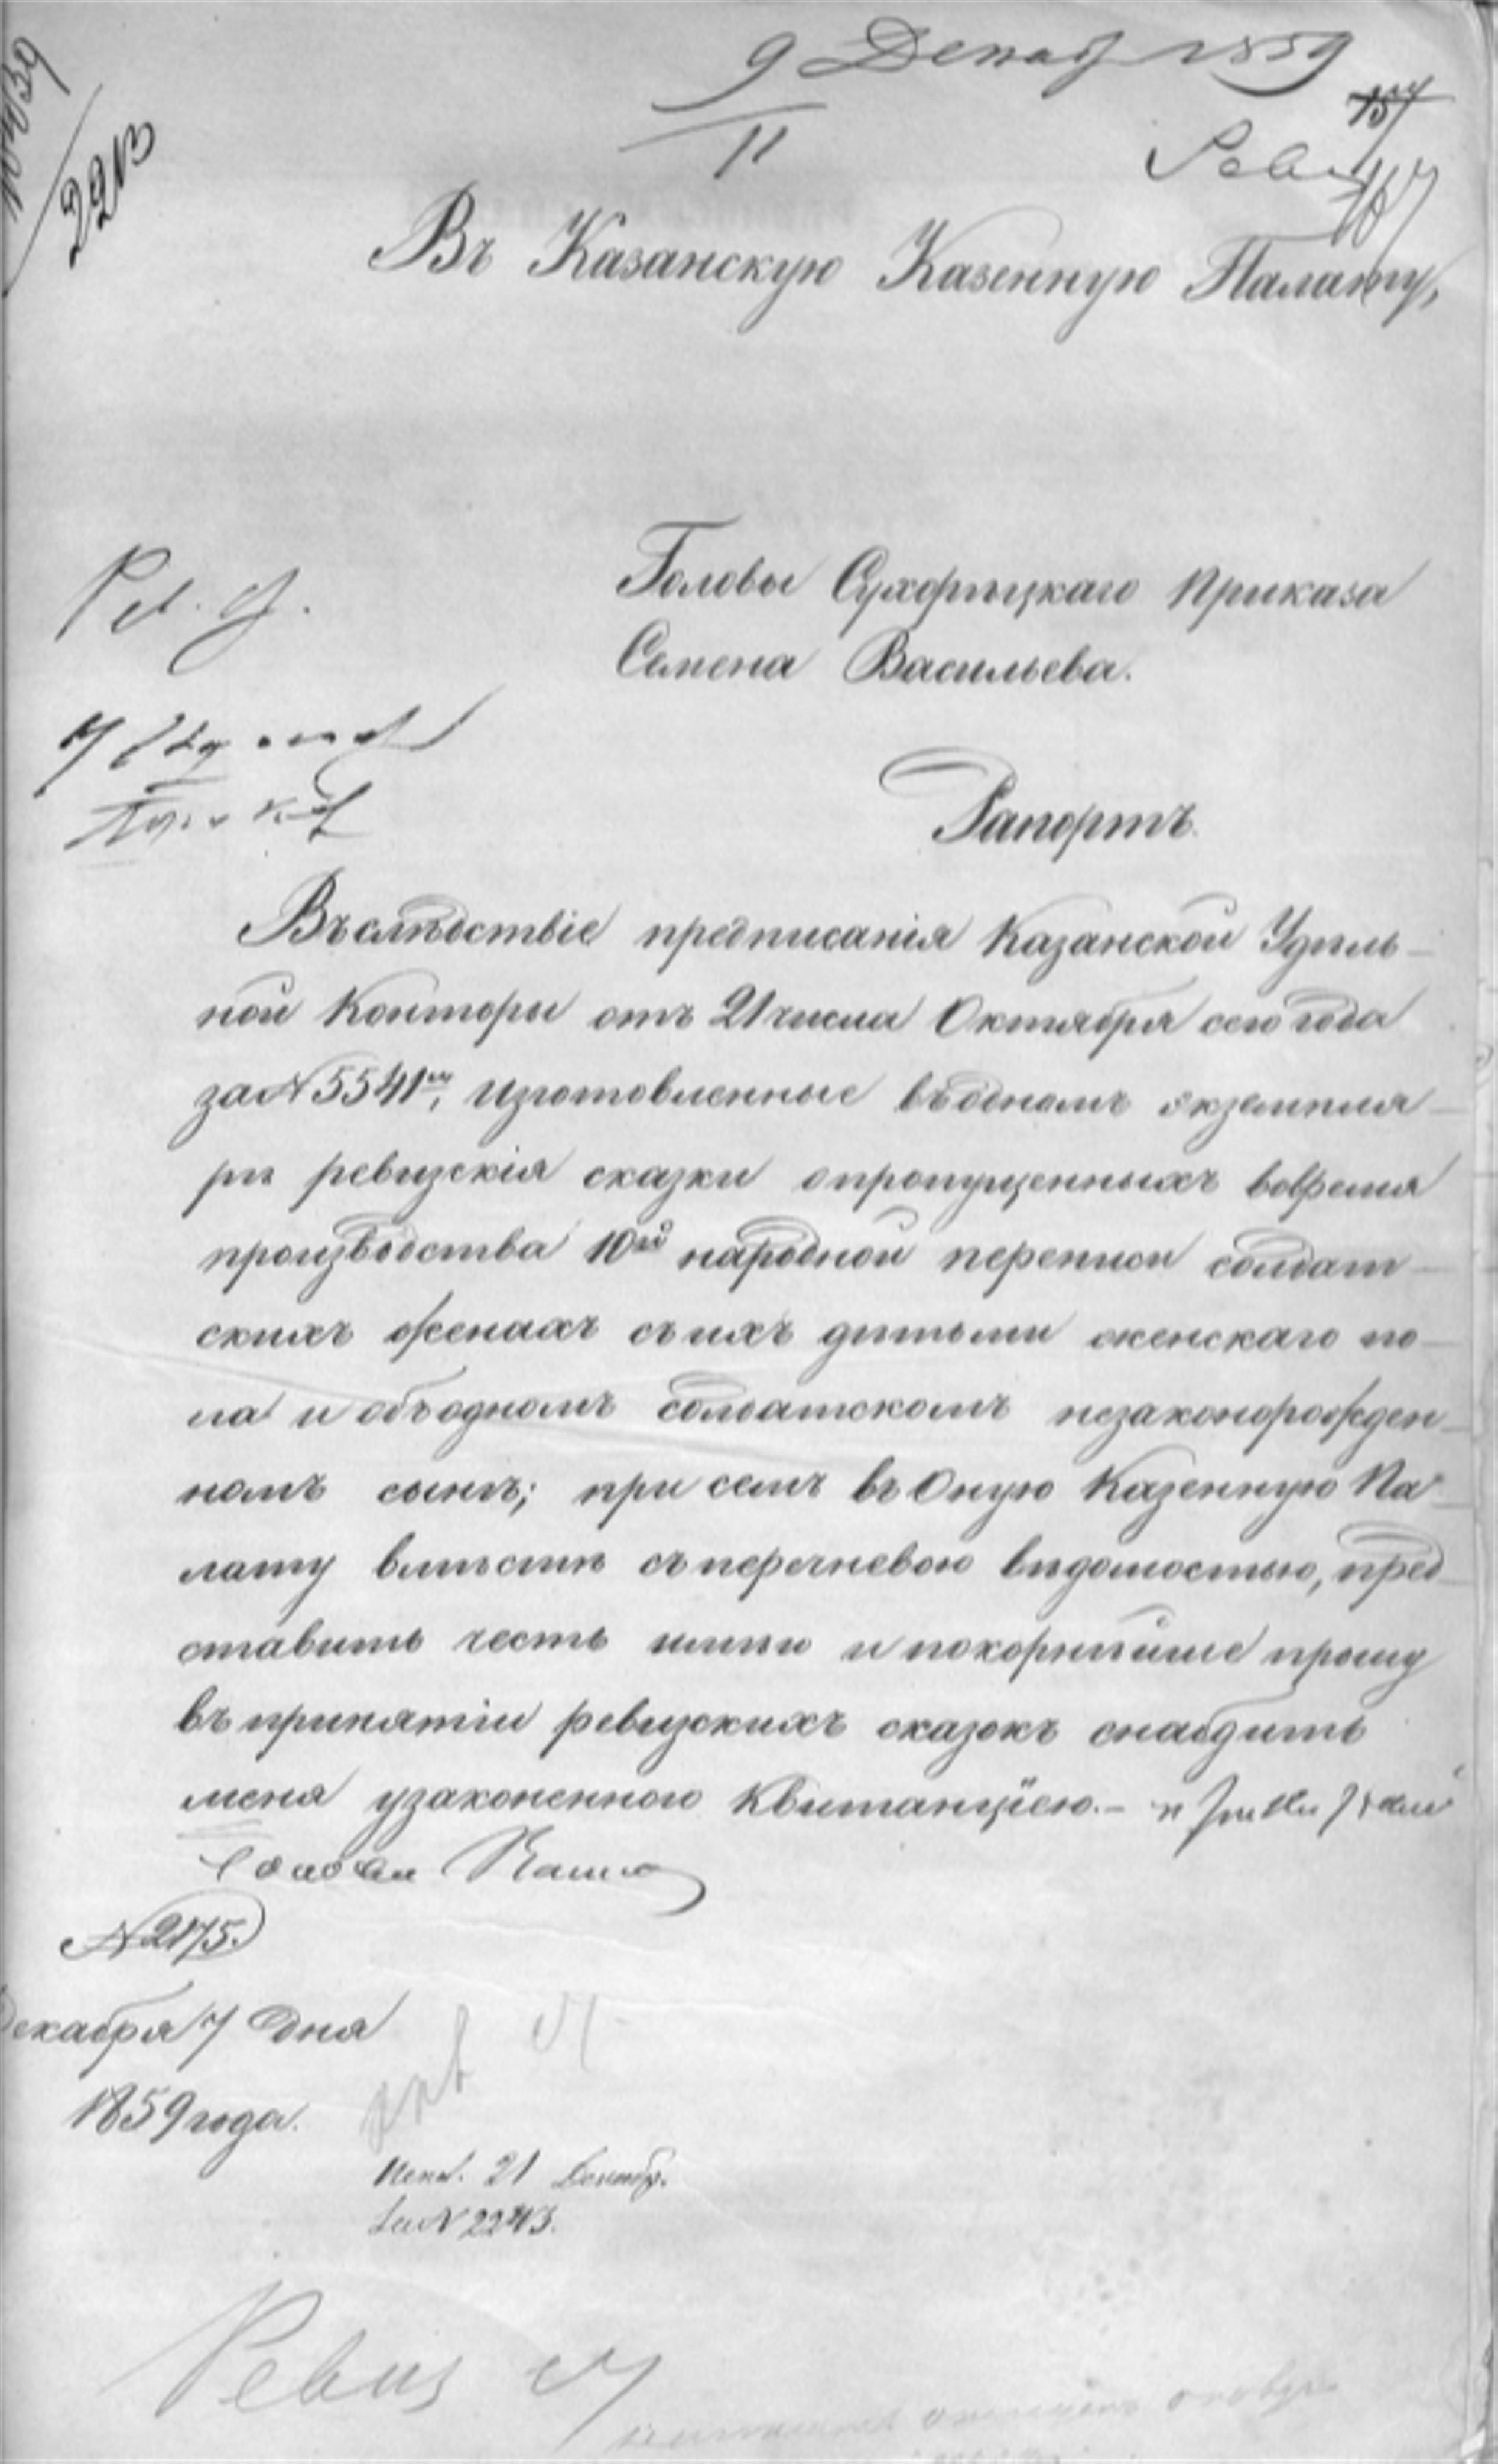 9 Декаб 1859
11
157
167
2213
Въ Казанскую Казенную Палату,
Головы Сухорѣцкаго Приказа
Семена Васильева.
Рапортъ.
Въслѣдствіе предписанія Казанской Удѣль-
ной Конторы отъ 21 числа Октября сего года
за N 5541мъ, изготовленные въ одномъ экземпля-
рѣ ревизскія сказки о пропущенныхъ вовремя
производства 10ой народной переписи солдат-
скихъ женахъ съ ихъ дѣтьми женскаго по-
ла и объ одномъ солдатскомъ незаконорожден-
номъ сынѣ; при семъ въ Оную Казенную Па-
лату вмѣстѣ съ перечневою вѣдомостью, пред-
ставить честь имѣю и покорнѣйше прошу
въ принятіи ревизскихъ сказокъ снабдить
меня узаконенною Квитанціею.-
N 2175.
Декабря 7 дня
1859 года.
21 Декабр.
За N 2243.
Ревиз